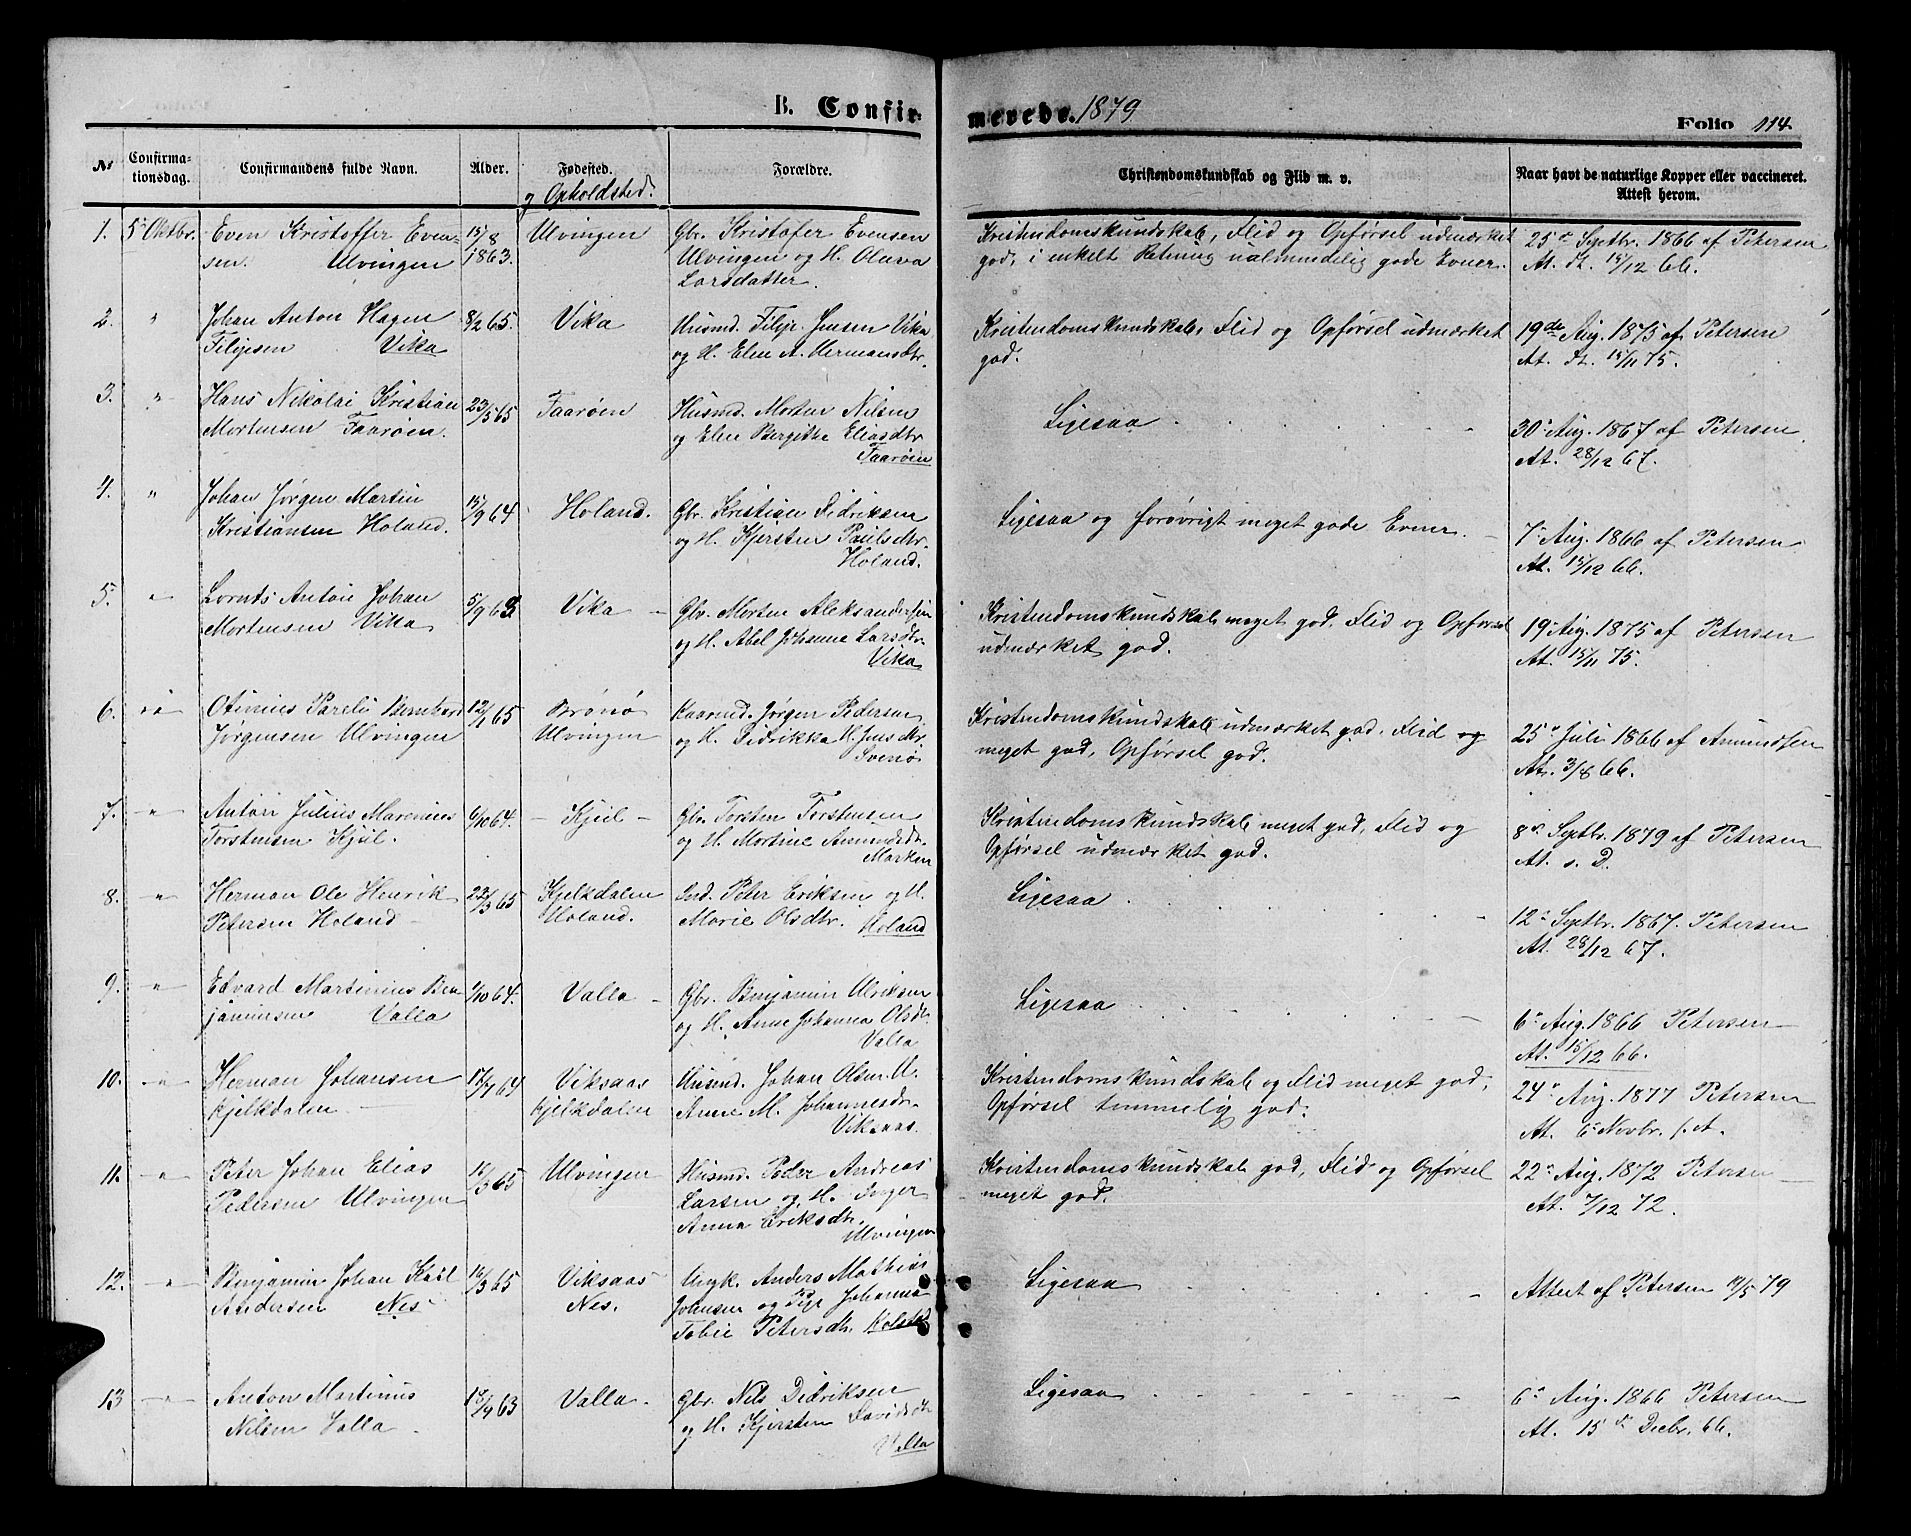 B. Confirmerede. 1879
Folio 114.
No
Confirma-
tionsdag.
Confirmandens fulde Navn.
Alder.
Fødested.
og Opholdsted.
Forældre.
Christendomskundskab og Flid m. v.
Naar havt de naturlige Kopper eller vaccineret.
Attest herom.
1. 5. Oktbr. Even Kristoffer Even-
sen. Ulvingen
15/8
1863.
Ulvingen
Gbr. Kristofer Evensen
Ulvingen og H. Olava
Larsdatter.
Kristendomskundskab, Flid og Opførsel udmærket
god, i enkelt Retning ualmindelig gode Evner.
25de Septbr. 1866 af Petersen
At. dt. 15/12 66.
2. " Johan Anton Hagen
Filipsen Vika
8/2 65.
Vika
Husmd. Filip Jensen Vika
og H. Elen A. Hermansdtr.
Kristendomskundskab, Flid og Opførsel udmærket
god.
19de Aug. 1875 af Petersen
At. dt. 15/11 75.
3. " Hans Nikolai Kristian
Mortensen Faarøen.
23/5 65
Faarøen
Husmd. Morten Nilsen
og Elen Bergitha Eliasdtr.
Faarøen
Ligesaa
30' Aug. 1867 af Petersen
At. 28/12 67.
4. " Johan Jørgen Martin
Kristiansen Holand.
15/9 64
Holand.
Gbr. Kristian Didriksen
og H. Kjersten Paulsdtr.
Holand.
Ligesaa og forøvrigt meget gode Evner.
7' Aug. 1866 af Petersen
At. 15/12 66.
5. " Lornts Anton Johan
Mortensen Vika
5/9 63
Vika
Gbr. Morten Aleksandersen
og H. Abel Johanna Larsdtr.
Vika
Kristendomskundskab meget god, Flid og Opførsel
udmærket god.
19' Aug. 1875 af Petersen
At. 15/11 75.
6. " Otinius Parelii Bernhard
Jørgensen Ulvingen
12/1 65
Brønø
Ulvingen
Kaarmd. Jørgen Pedersen
og H. Didrikka H. Jensdtr.
Svenø
Kristendomskundskab udmærket god, Flid og
meget god, Opførsel god.
25' Juli 1866 af Amundsen
At. 3/8 66.
7. " Anton Julius Marenius
Torstensen Kjul.
6/10 64.
Kjul
Gbr. Torsten Torstensen
og H. Martine Amundsdtr.
Marken
Kristendomskundskab meget god, Flid og
Opførsel udmærket god.
8' Septbr. 1879 af Petersen
At. s. D.
8. " Herman Ole Henrik
Petersen Holand
22/3 65
Kjelkdalen
Holand.
Ind. Peter Eriksen og H.
Marie Olsdtr. Holand
Ligesaa
12' Septbr. 1867. Petersen
At. 28/12 67.
9. " Edvard Martinius Ben-
jaminsen Valla
1/10 64.
Valla
Gbr. Benjamin Ulriksen
og H. Anne Johanna Olsdtr.
Valla
Ligesaa
6' Aug. 1866 Petersen
At. 15/12 66.
10. " Herman Johansen
Kjelkdalen
17/7 64
Viksaas
Kjelkdalen
Husmd. Johan Olsen H.
Anne M. Johannesdtr.
Viksaas.
Kristendomskundskab og Flid meget god,
Opførsel temmelig god.
24' Aug. 1877 Petersen
At. 6' Novbr. s. A.
11. " Peter Johan Elias
Pedersen Ulvingen
16/3 65
Ulvingen
Husmd. Peder Andreas
Larsen og H. Inger
Anna Eriksdtr.
Ulvingen
Kristendomskundskab god, Flid og Opførsel
meget god.
22' Aug. 1872 Petersen
At. 7/12 72.
12. " Benjamin Johan Karl
Andersen Nes
16/3 65
Viksaas
Nes.
Ungk. Anders Mathias
Johansen og Pige Johanna
Tobie Petersdtr.
Ligesaa
Attest af Petersen 19/5 79
13 " Anton Martinus
Nilsen Valla
17/7 63
Valla.
Gbr. Nils Didriksen
og H. Kjersten Davidsdtr.
Valla
Ligesaa
6' Aug. 1866 Petersen
At. 15de Decbr. 66.